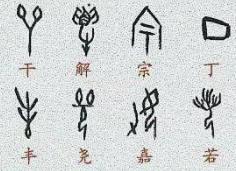 干 解 宗 丁
丰 尧 嘉 若